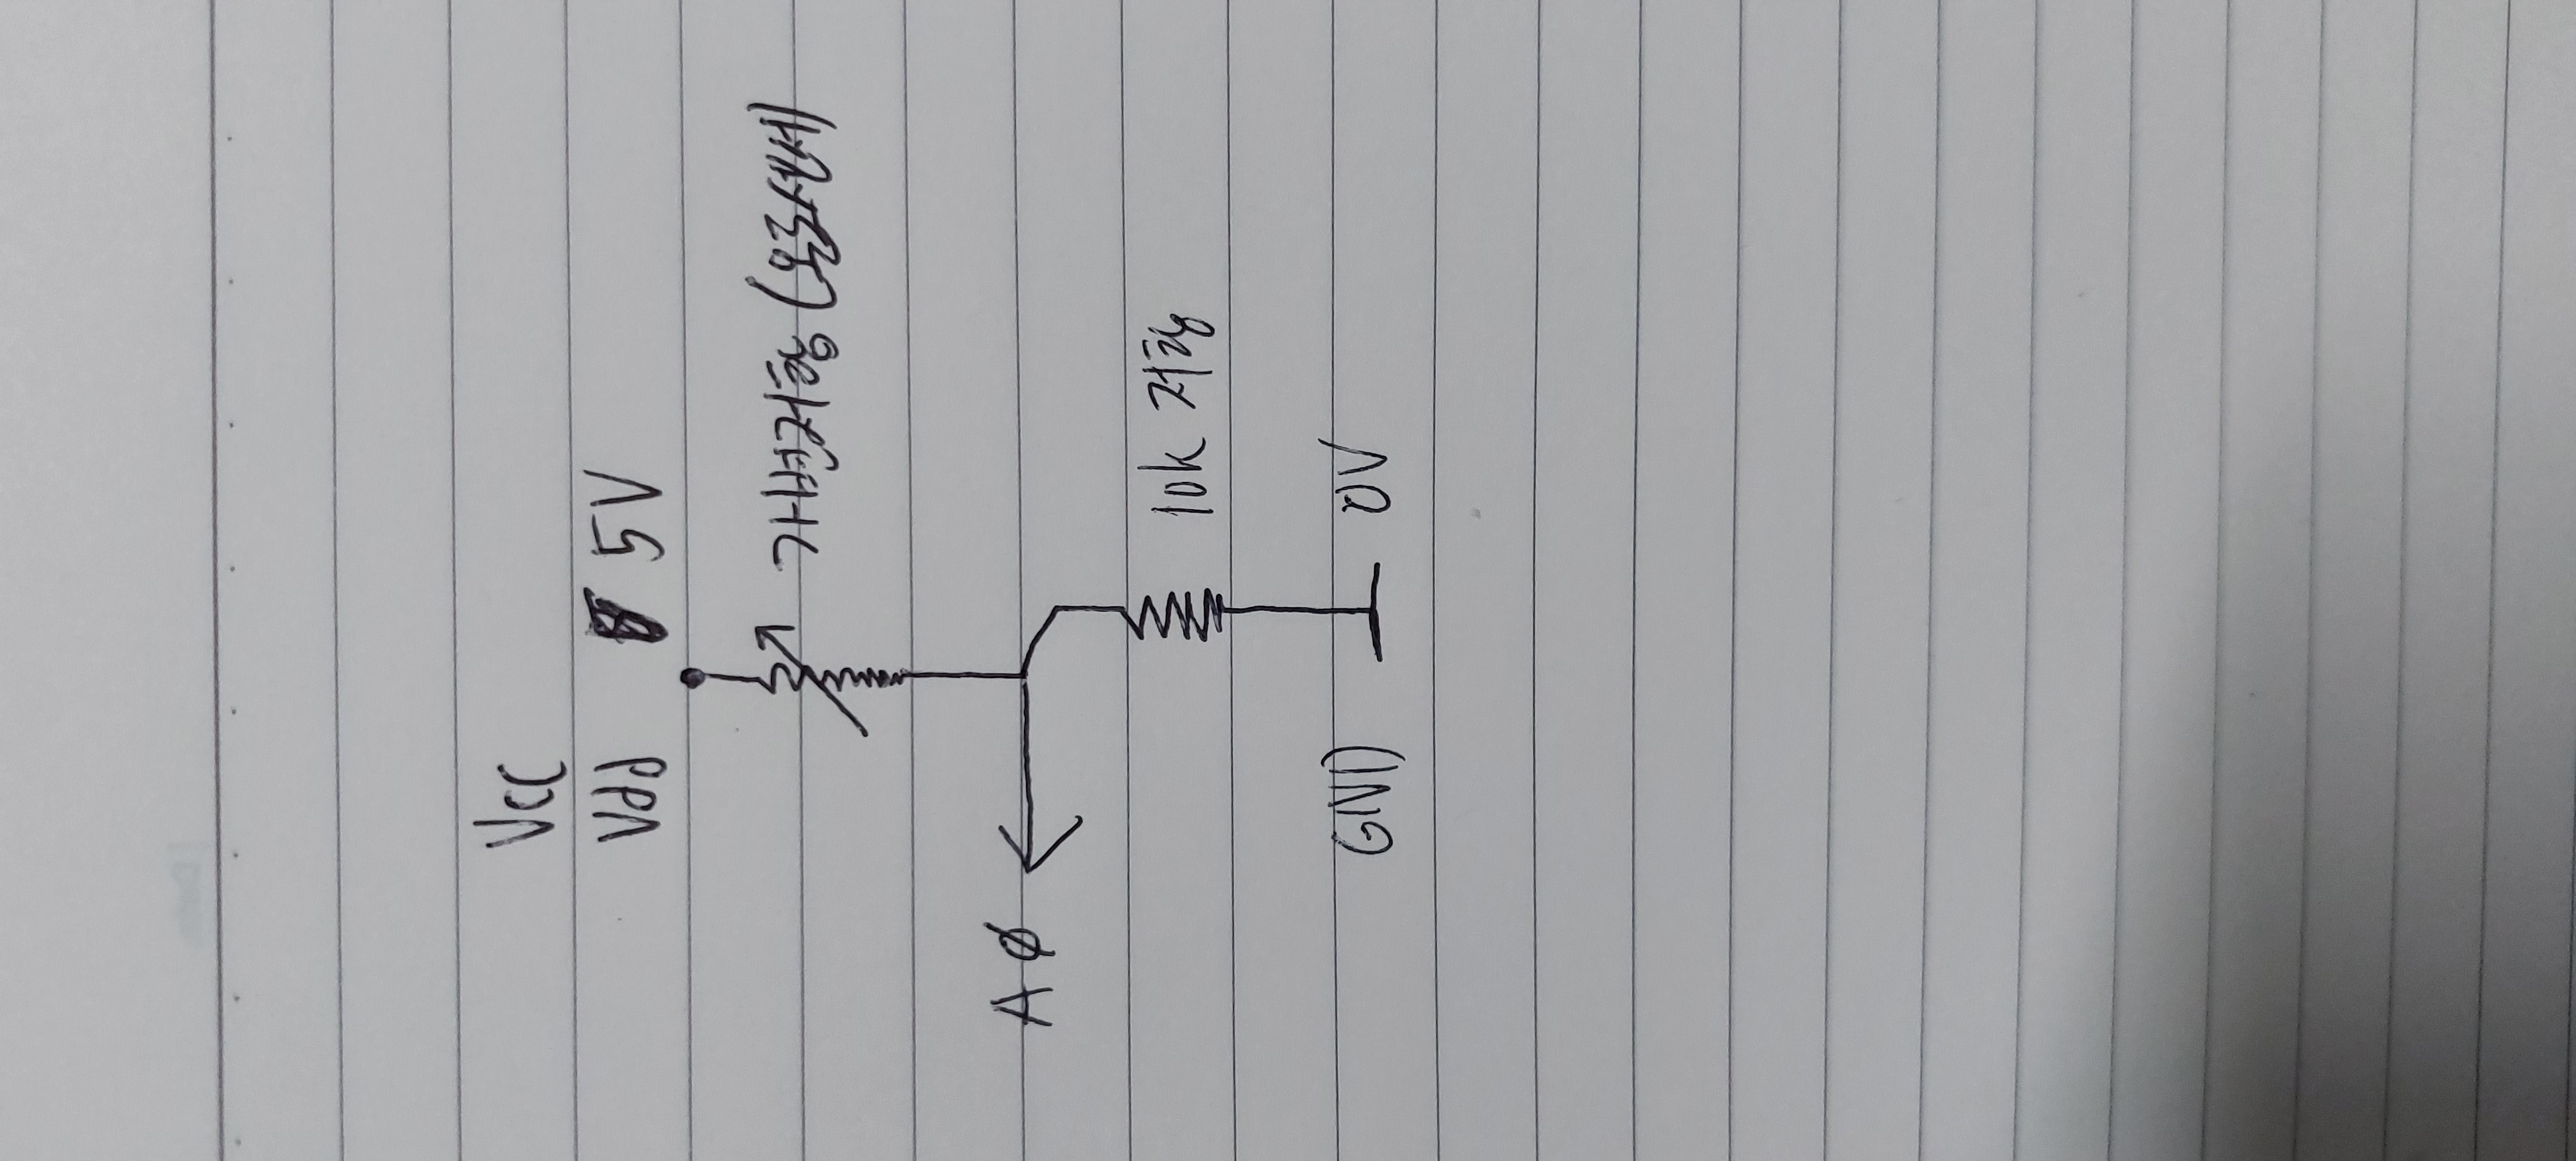 Vcc
Vdd 5V
가변저항 (온도센서)
AØ
10k 저항
GND 0V